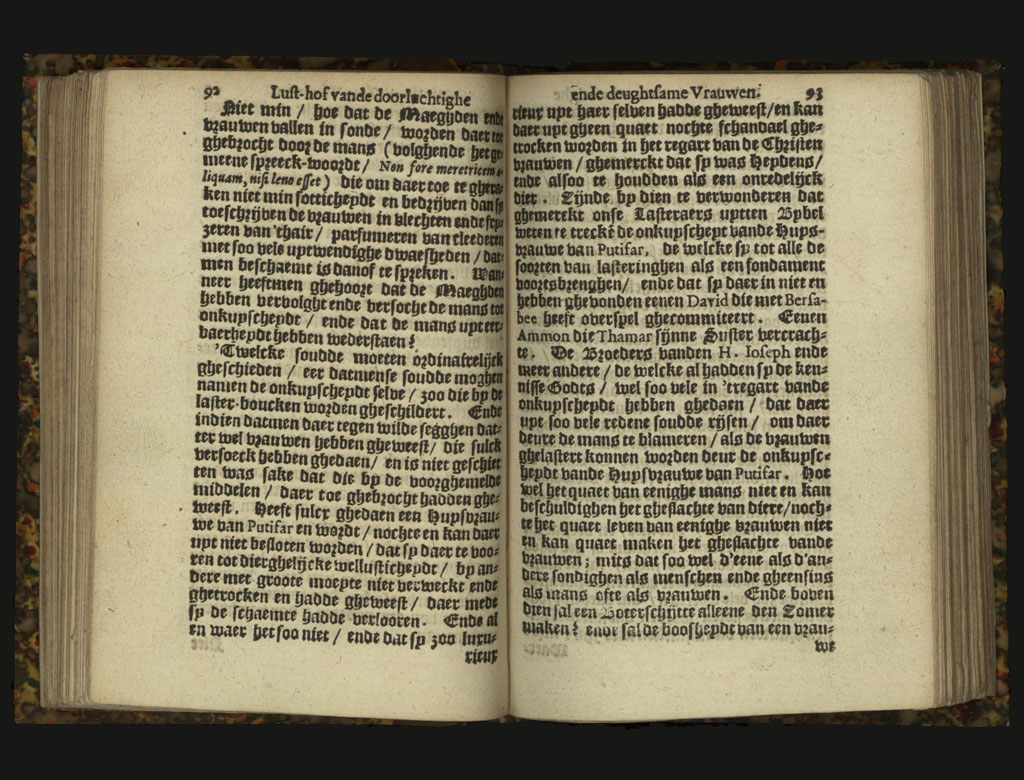 92 Lust-hof vande doorluchtighe
Niet min / hoe dat de Maeghden ende
vrauwen vallen in sonde / worden daer toe
ghebrocht door de mans (volghende het ge-
meene spreeck-woordt / Non fore meretricem a-
liquam, nisi leno esset) die om daer toe te ghera-
ken niet min sottichepdt en bedrijven dan sp
toeschrijven de vrauwen in vlechten ende frp-
zeren van 'thair / parfumeren van cleederen
met soo vele uptwendighe dwaesheden / dat-
men beschaemt is danof te spreken. Wan-
neer heeftmen ghehoort dat de Maeghden
hebben vervolght ende versocht de mans tot
onkupschepdt / ende dat de mans upt eer-
baerhepdt hebben wederstaen?
'Twelcke soudde moeten ordinairelijck
gheschieden / eer datmense soudde moghen
namen de onkupschepdt selve / zoo die bp de
laster-boucken worden gheschildert. Ende
indien datmen daer tegen wilde segghen dat-
ter wel vrauwen hebben gheweest / die sulck
versoeck hebben ghedaen / en is niet geschiet
ten was sake dat die bp de voorghemelde
middelen / daer toe ghebrocht hadden ghe-
weest. Heeft sulcx ghedaen een Hupsvrau-
we van Putifar en wordt / nochte en kan daer
upt niet besloten worden / dat sp daer te voo-
ren tot dierghelijcke wellustichepdt / bp an-
dere met groote moepte niet verweckt ende
ghetrocken en hadde gheweest / daer mede
sp de schaemte hadde verlooren. Ende al
en waer het soo niet / ende dat sp zoo luxu-
rieux
ende deughtsame Vrauwen. 93
rieux upt haer selven hadde gheweest / en kan
daer upt gheen quaet nochte schandael ghe-
trocken worden in het regart van de Christen
vrauwen / ghemerckt dat sp was Hepdens /
ende alsoo te houdden als een onredelijck
dier. Zijnde bp dien te verwonderen dat
ghemerckt onse Lasteraers uptten Bpbel
weten te trecke de onkupschept vande Hups-
vrauwe van Putifar, de welcke sp tot alle de
soorten van lasteringhen als een fondament
voortsbrenghen / ende dat sp daer in niet en
hebben ghevonden eenen David die met Bersa-
bee heeft overspel ghecommiteert. Eenen
Ammon die Thamar sijnne Suster vercrach-
te. De Broeders vanden H. Ioseph ende
meer andere / de welcke al hadden sp de ken-
nisse Godts / wel soo vele in 'tregart vande
onkupschepdt hebben ghedaen / dat daer
upt soo vele redene soudde rijsen / om daer
deure de mans te blameren / als de vrauwen
ghelastert konnen worden deur de onkupsc-
hepdt vande Hupsvrauwe van Putifar. Hoe
wel het quaet van eenighe mans niet en kan
beschuldighen het gheslachte van diere / noch-
te het quaet leven van eenighe vrauwen niet
en kan quaet maken het gheslachte vande
vrauwen; mits dat soo wel d'eene als d'an-
dere sondighen als menschen ende gheensins
als mans ofte als vrauwen. Ende boven
dien sal een Boterschijtte alleene den Zomer
maken? ende sal de boosheydt van een vrau-
we